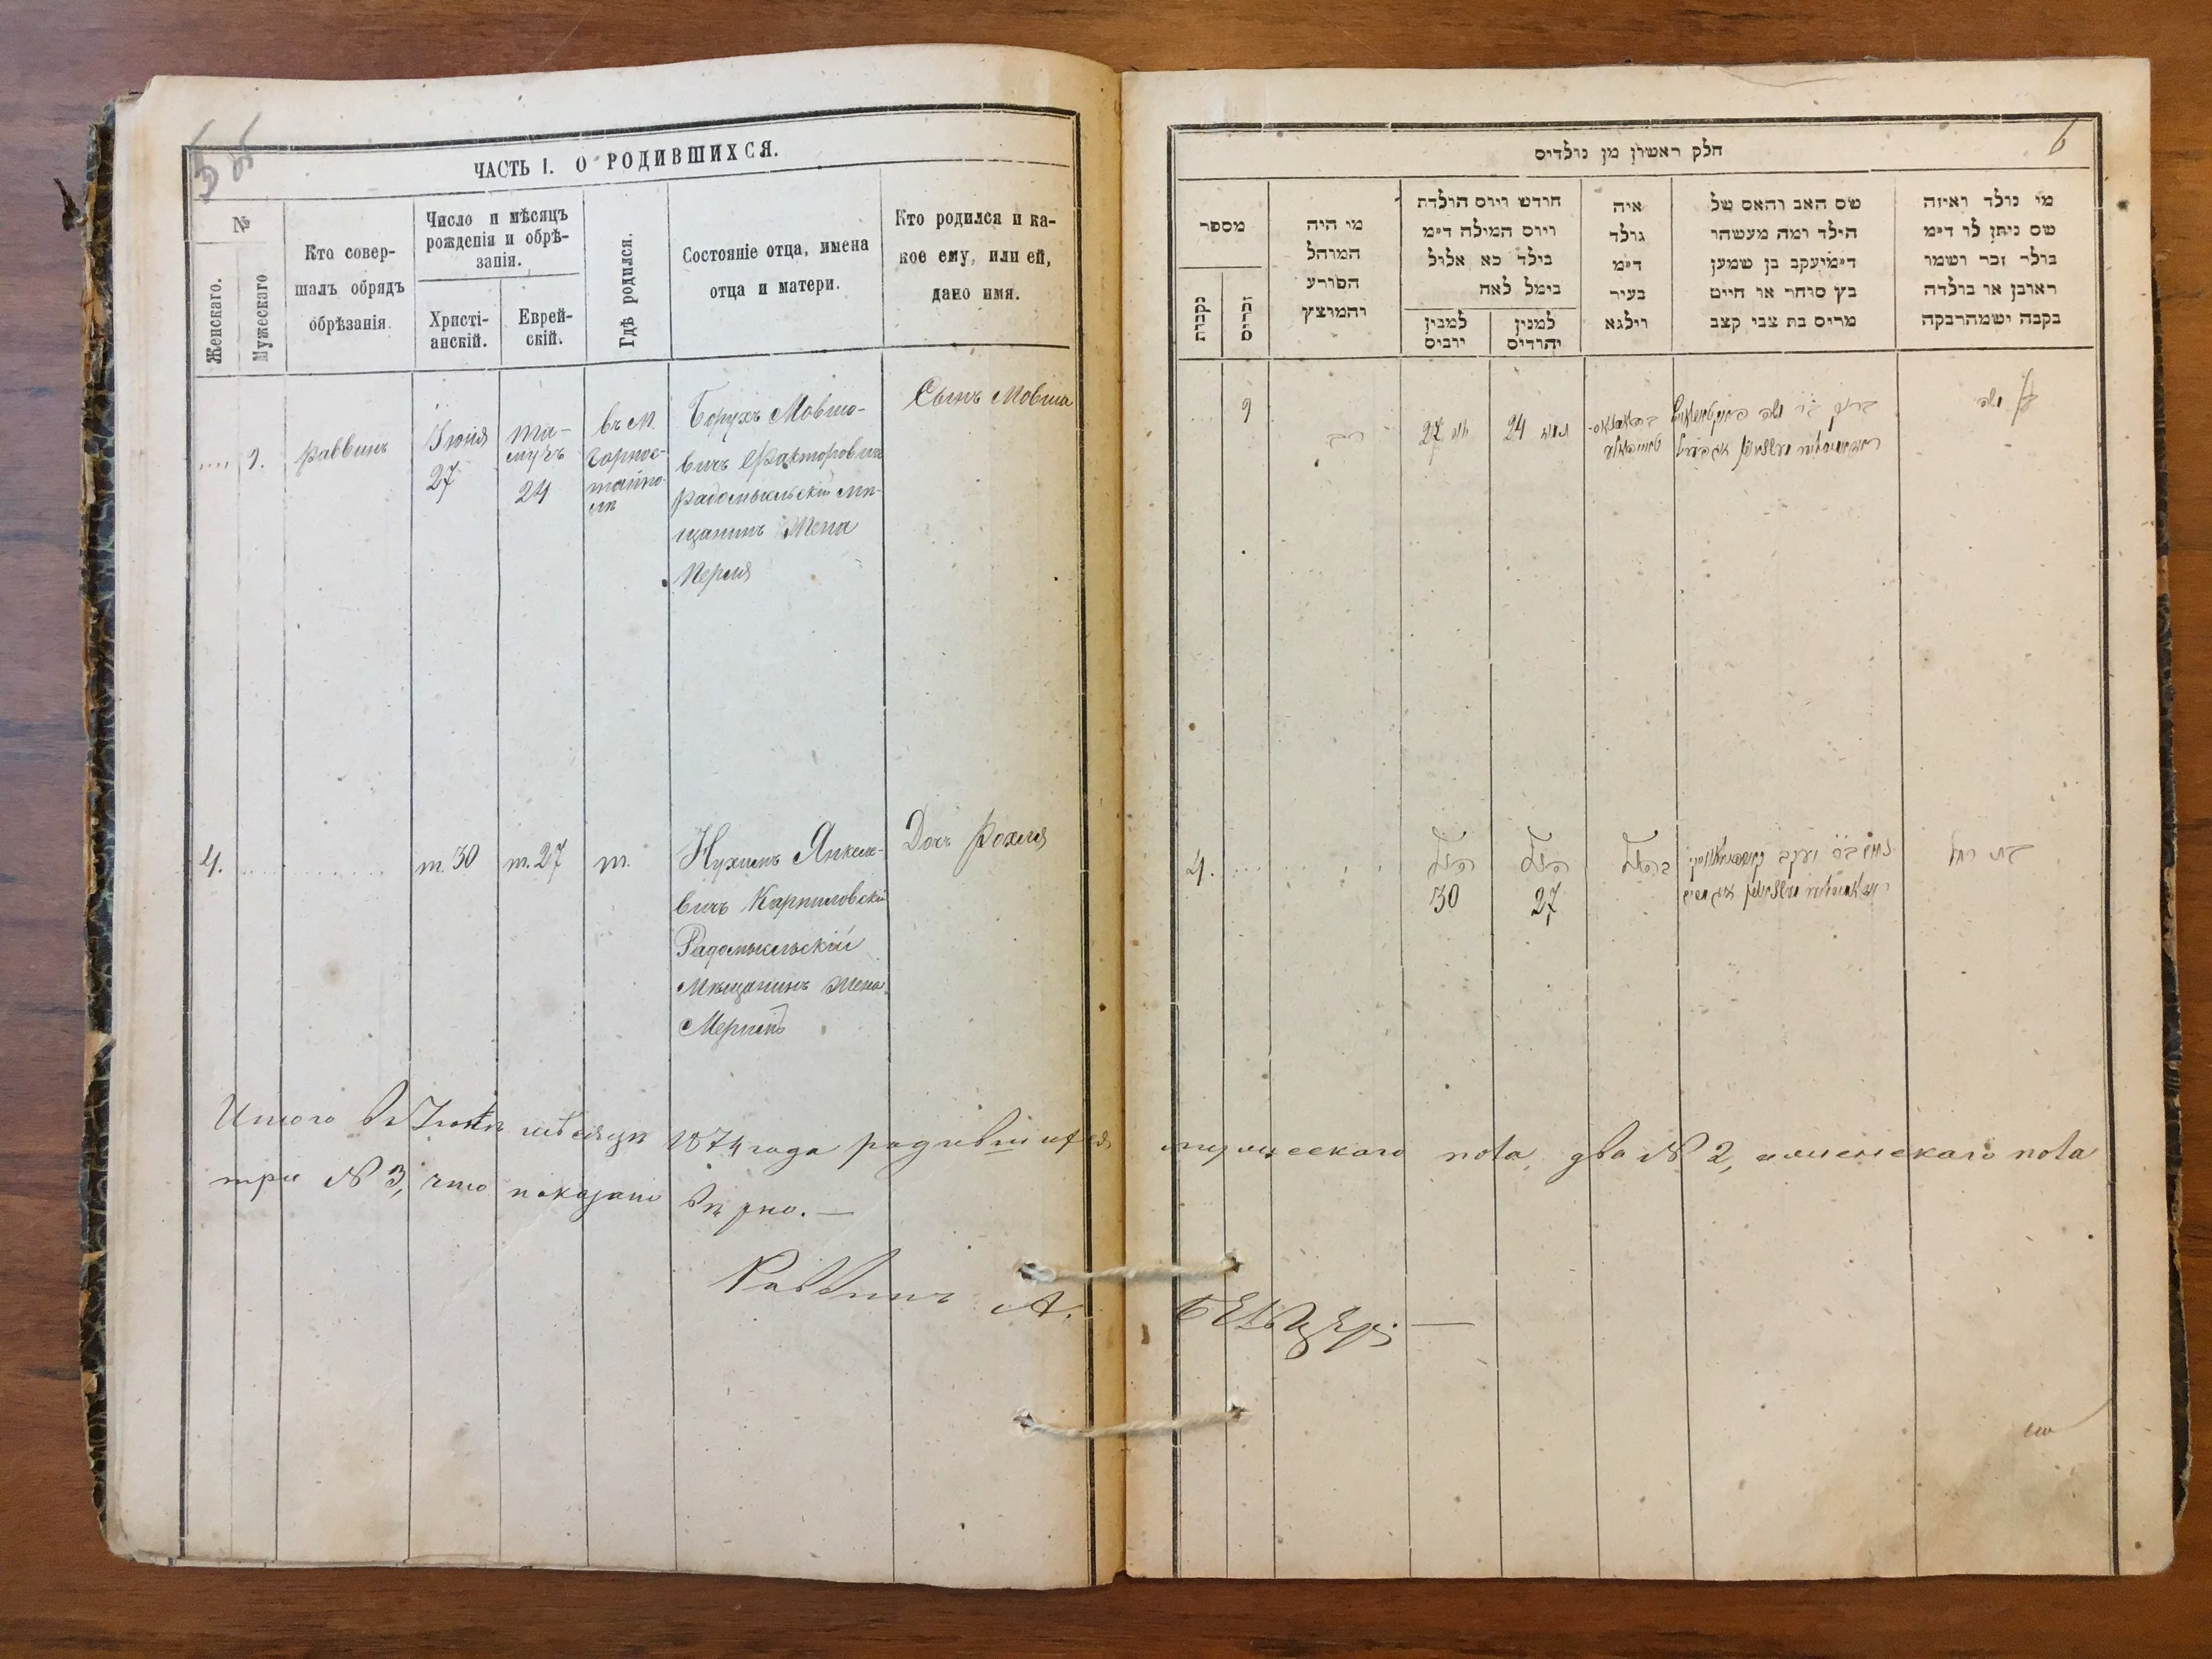 5 об
ЧАСТЬ I. О РОДИВШИХСЯ.
№
Женскаго.
Мужескаго
Кто совер-
шалъ обрядъ
обрѣзанія.
Число и мѣсяцъ
рожденія и обрѣ-
занія.
Христі-
анскій.
Еврей-
скій.
Гдѣ родился.
Состояніе отца, имена
отца и матери.
Кто родился и ка-
кое ему, или ей,
дано имя.
9.
раввинъ
Іюня
27
Та-
музъ
24
въ м.
Горнос-
тайпо-
лѣ
Борухъ Мовшо-
вичъ Факторовичъ
Радомысльскій мѣ-
щанинъ Жена
Перля
Сынъ Мовша
4.
т. 30
т. 27
т.
Нухимъ Янкеле-
вичъ Карпиловскій
Радомысльскій
Мѣщанинъ Жена
Дочь Рохля
Итого въ Іюнѣ мѣсяцѣ 1874 года родившихся мужескаго пола, два № 2, женскаго пола
три № 3, что показано вѣрно. —
Раввинъ А.
6
חלק ראשון מן נולדים
מספר
נקבות
זכרים
מי היה
המוהל
הפורע
והמוצץ
חודש ויום הולדת
ויום המילה ד״מ
נולד כא אלול
נימל לאח
למנין
יוונים
למנין
יהודים
איה
נולד
ד״מ
בעיר
ווילנא
שם האב והאם של
הילד ומה מעשהו
ד״מ יעקב בן שמעון
כץ סוחר או חייט
מרים בת צבי קצב
מי נולד ואיזה
שם ניתן לו ד״מ
נולד זכר ושמו
ראובן או נולדה
נקבה ושמה רבקה
9
רב
27
24
בן משה
4.
30
27
בת רחל